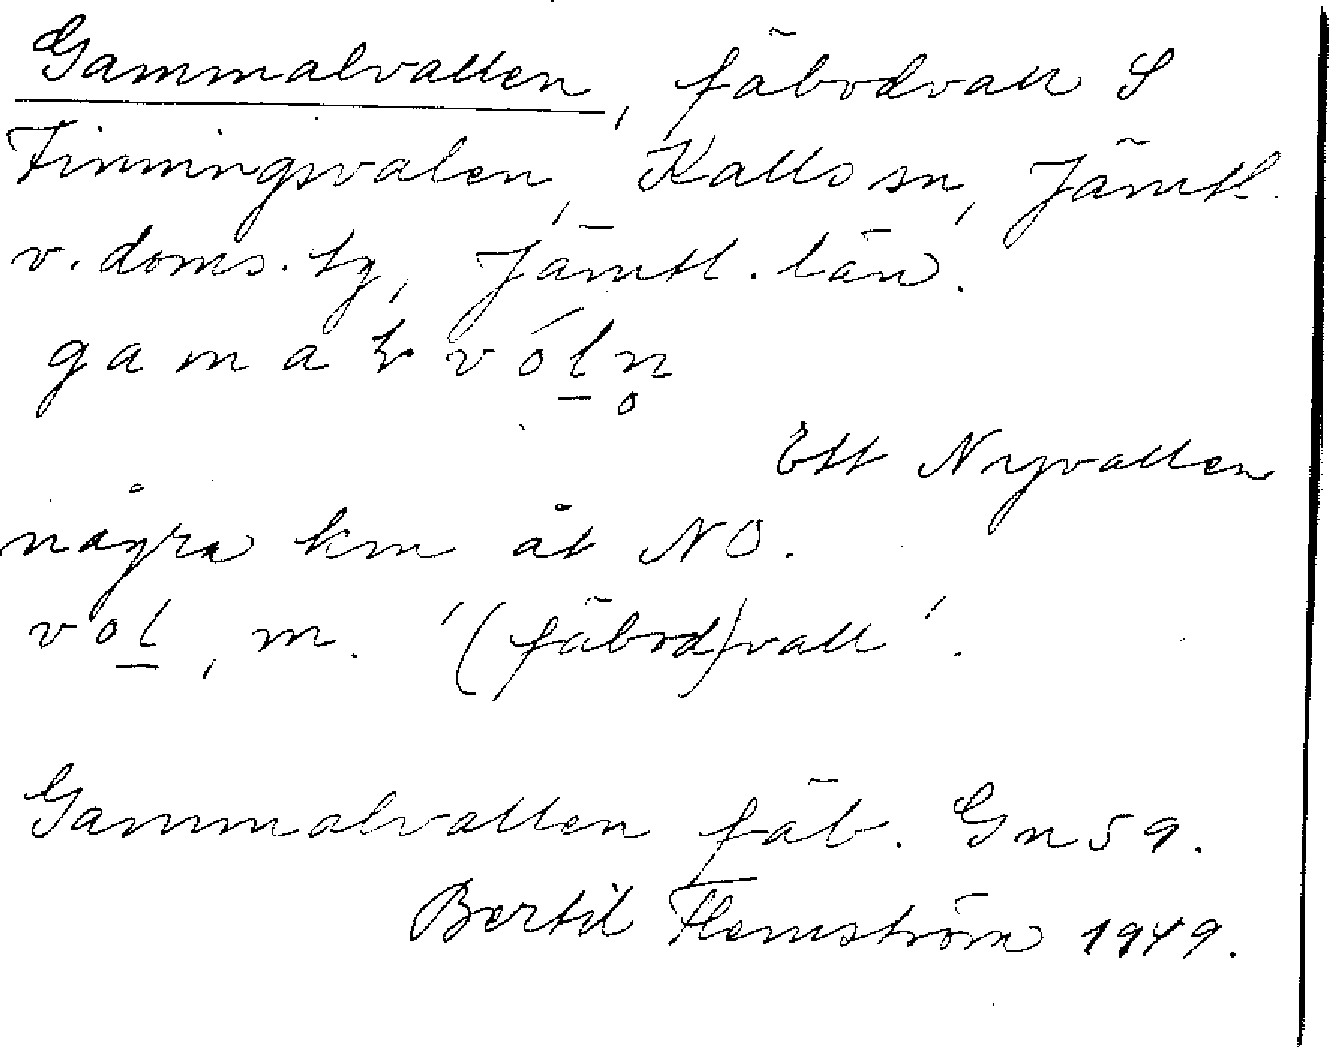 Gammalvallen, fäbodvall S
Finningsvalen, Kalls sn, Jämtl.
v. doms. tg, Jämtl. län.
gamaƚvól̲n̥
Ett Nyvallen
några km åt NO.
vol̲, m. '(fäbod)vall'.
Gammalvallen fäb. Gn 59.
Bertil Flemström 1949.